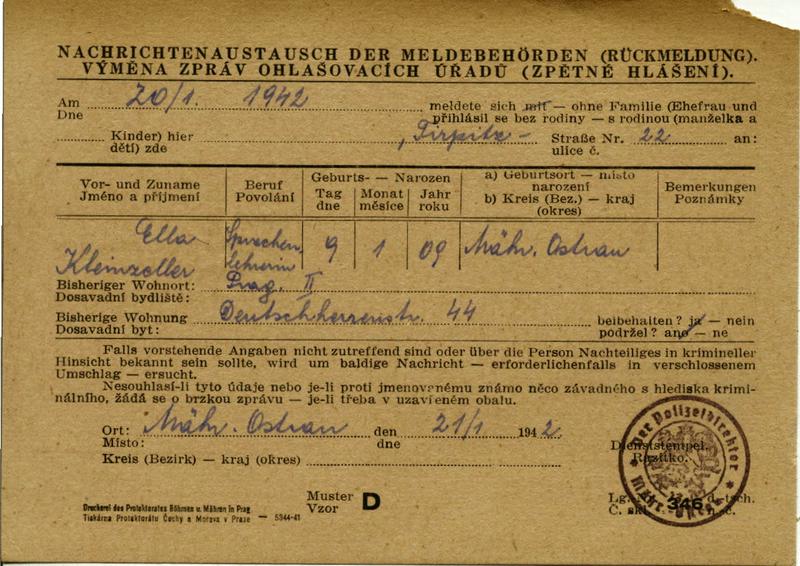 NACHRICHTENAUSTAUSCH DER MELDEBEHÖRDEN (RÜCKMELDUNG).
VÝMĚNA ZPRÁV OHLAŠOVACÍCH ÚŘADŮ (ZPĚTNÉ HLÁŠENÍ).
Am 20/1. 1942 meldete sich mit — ohne Familie (Ehefrau und
Dne přihlásil se bez rodiny — s rodinou (manželka a
Kinder) hier Tirpitz- Straße Nr. 22 an:
dětí) zde ulice č.
Vor- und Zuname Beruf Geburts- — Narozen a) Geburtsort — místo Bemerkungen
Jméno a příjmení Povolání Tag Monat Jahr narození Poznámky
dne měsíce roku b) Kreis (Bez.) — kraj
(okres)
Ella Sprachen- 9 1 09 Mähr. Ostrau
Kleinzeller lehrerin
Bisheriger Wohnort: Prag. II
Dosavadní bydliště:
Bisherige Wohnung Deutschherrenstr. 44 beibehalten? ja — nein
Dosavadní byt: podržel? ano — ne
Falls vorstehende Angaben nicht zutreffend sind oder über die Person Nachteiliges in krimineller
Hinsicht bekannt sein sollte, wird um baldige Nachricht — erforderlichenfalls in verschlossenem
Umschlag — ersucht.
Nesouhlasí-li tyto údaje nebo je-li proti jmenovanému známo něco závadného s hlediska krimi-
nálního, žádá se o brzkou zprávu — je-li třeba v uzavřeném obalu.
Ort: Mähr. Ostrau den 21/1 1942
Místo: dne
Kreis (Bezirk) — kraj (okres)
Dienststempel.
Razítko.
Der Polizeidirektor
Mähr.-Ostrau
346
Muster D
Vzor
Lg. Nr. d.-tsch.
Č. skl. n.-č.
Druckerei des Protektorates Böhmen u. Mähren in Prag
Tiskárna Protektorátu Čechy a Morava v Praze — 5344-41